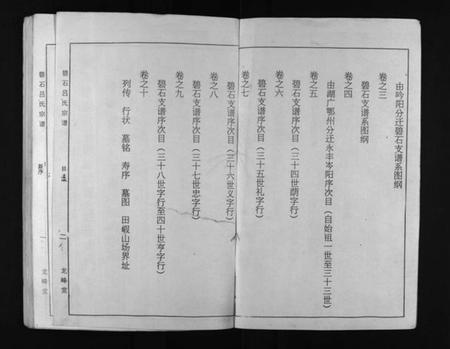 由吟阳分迁碧石支谱系图纲
卷之三
碧石支谱系图纲
卷之四
由湖广鄂州分迁永丰岑阳序次目（自始祖一世至三十三世）
卷之五
碧石支谱序次目（三十四世荫字行）
卷之六
碧石支谱序次目（三十五世礼字行）
卷之七
碧石支谱序次目（三十六世义字行）
卷之八
碧石支谱序次目（三十七世忠字行）
卷之九
碧石支谱序次目（三十八世字行至四十世亨字行）
卷之十
列传 行状 墓铭 寿序 墓图 田嘏山场界址
碧石吕氏宗谱
二
龙峰堂
碧石吕氏宗谱
一
龙峰堂